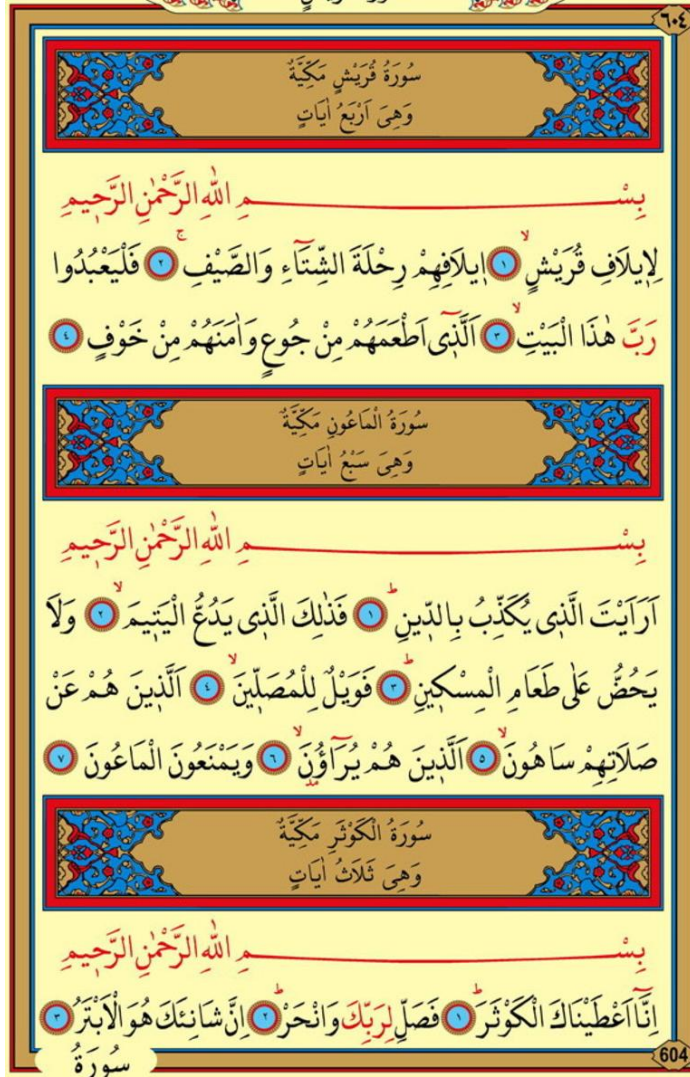 ٦٠٤
سُورَةُ قُرَيْشٍ مَكِّيَّةٌ
وَهِىَ اَرْبَعُ اٰيَاتٍ
بِسْمِ اللّٰهِ الرَّحْمٰنِ الرَّحِيمِ
لِاِيلَافِ قُرَيْشٍۙ ﴿١﴾ اِيلَافِهِمْ رِحْلَةَ الشِّتَٓاءِ وَالصَّيْفِۚ ﴿٢﴾ فَلْيَعْبُدُوا
رَبَّ هٰذَا الْبَيْتِۙ ﴿٣﴾ اَلَّذٖٓى اَطْعَمَهُمْ مِنْ جُوعٍ وَاٰمَنَهُمْ مِنْ خَوْفٍ ﴿٤﴾
سُورَةُ الْمَاعُونِ مَكِّيَّةٌ
وَهِىَ سَبْعُ اٰيَاتٍ
بِسْمِ اللّٰهِ الرَّحْمٰنِ الرَّحِيمِ
اَرَاَيْتَ الَّذٖى يُكَذِّبُ بِالدّٖينِؕ ﴿١﴾ فَذٰلِكَ الَّذٖى يَدُعُّ الْيَتٖيمَۙ ﴿٢﴾ وَلَا
يَحُضُّ عَلٰى طَعَامِ الْمِسْكٖينِؕ ﴿٣﴾ فَوَيْلٌ لِلْمُصَلّٖينَۙ ﴿٤﴾ اَلَّذٖينَ هُمْ عَنْ
صَلَاتِهِمْ سَاهُونَۙ ﴿٥﴾ اَلَّذٖينَ هُمْ يُرَٓاؤُ۫نَۙ ﴿٦﴾ وَيَمْنَعُونَ الْمَاعُونَ ﴿٧﴾
سُورَةُ الْكَوْثَرِ مَكِّيَّةٌ
وَهِىَ ثَلَاثُ اٰيَاتٍ
بِسْمِ اللّٰهِ الرَّحْمٰنِ الرَّحِيمِ
اِنَّٓا اَعْطَيْنَاكَ الْكَوْثَرَؕ ﴿١﴾ فَصَلِّ لِرَبِّكَ وَانْحَرْؕ ﴿٢﴾ اِنَّ شَانِئَكَ هُوَ الْاَبْتَرُ ﴿٣﴾
604
سُورَةُ